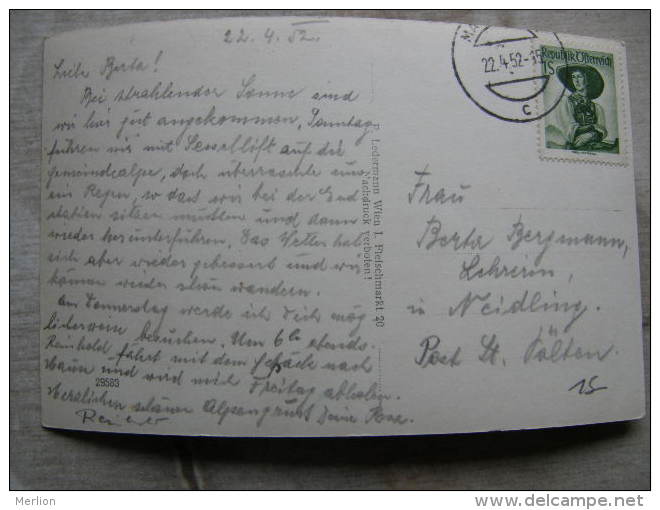 22.4.52
Liebe Berta!
Bei strahlender Sonne sind
wir hier gut angekommen, Sonntag
fuhren wir mit Sessellift auf die
Gemeindealpe, doch überraschte uns
ein Regen, so dass wir bei der End
station sitzen mußten und dann
wieder herunterfuhren. Das Wetter hat
sich aber wieder gebessert und wir
können wieder schön wandern.
Am Donnerstag werde ich Dich mög
licherweise besuchen. Um 6h abends.
Reinhold fährt mit dem nach
und wird mich Freitag abholen.
Herzlichen schönen Alpengruß Deine
29583
P. Ledermann Wien I. Fleischmarkt 20
Nachdruck verboten!
22.4.52-15
C
Republik Österreich
1S
Frau
Berta Bergmann,
Lehrerin,
in Neidling
Post St. Pölten.
15
Merlion
http://www.delcampe.net